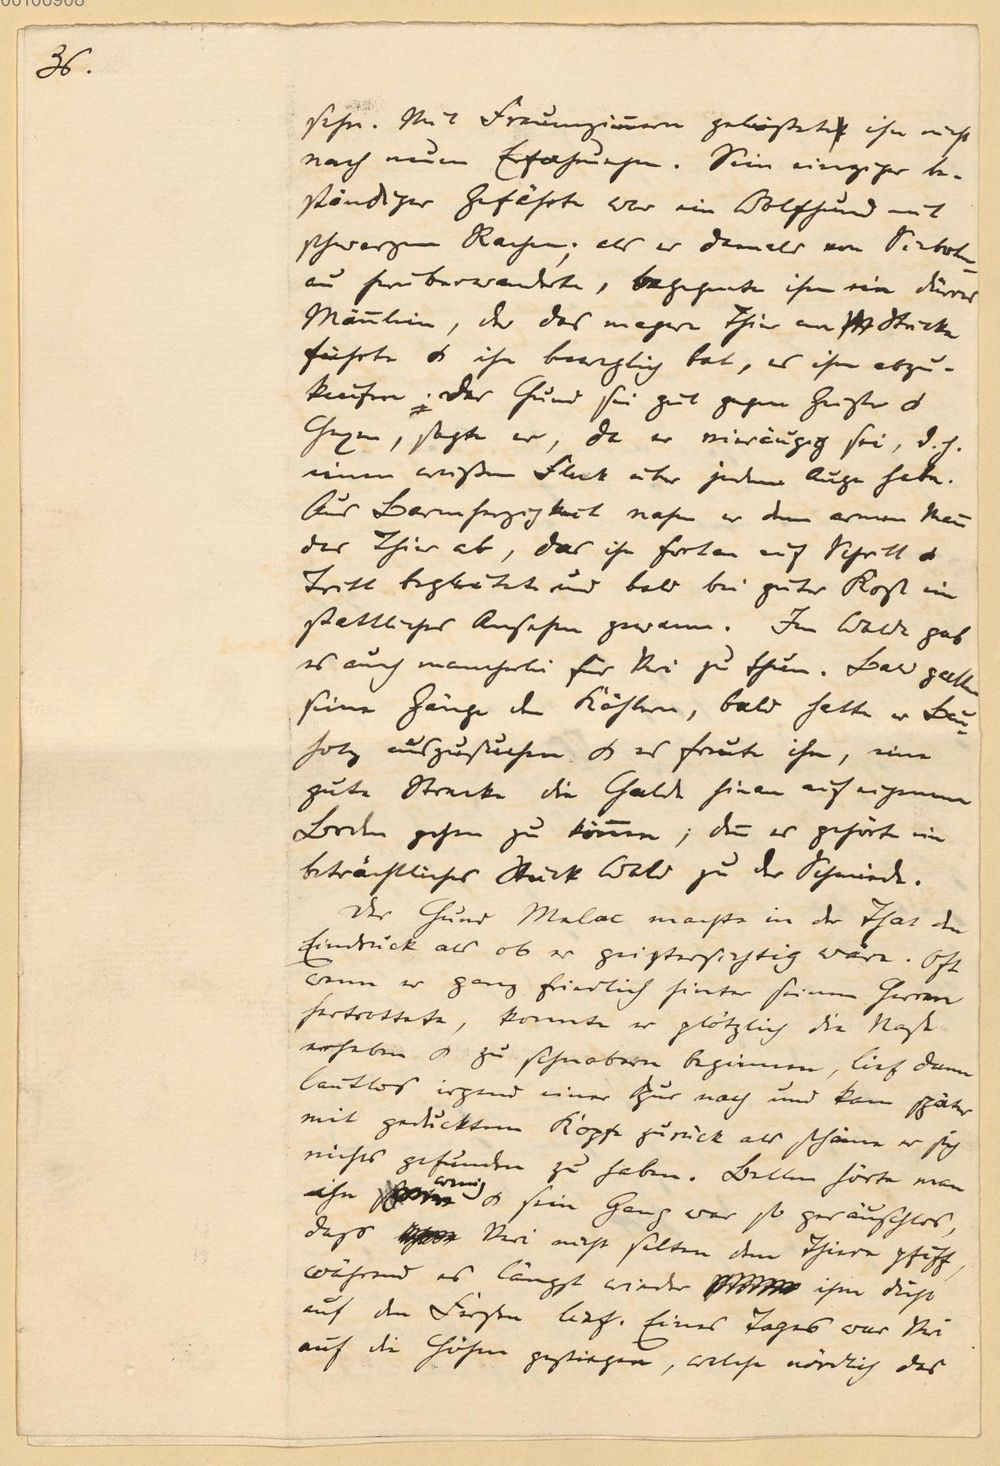 00106908
36.
sehn. Mit Frauenzimmern gelüstete ihn nicht
nach neuen Erfahrungen. Sein einziger be-
ständiger Gefährte war ein Wolfhund mit
schwarzem Rachen; als er damals von Siebeln-
au herüberwanderte, begegnete ihm ein dürres
Mäñlein, der das magere Thier am Stricke
führte & ihn beweglich bat, es ihm abzu-
kaufen; der Hund sei gut gegen Geister &
Hexen, sagte er, da er vieräugig sei, d. h.
einen weißen Fleck über jedem Auge habe.
Aus Barmherzigkeit nahm er dem armen Mañ
das Thier ab, das ihn fortan auf Schritt &
Tritt begleitete und bald bei guter Kost ein
stattliches Ansehen gewann. Im Walde gab
es auch mancherlei für Veri zu thun. Bald galten
seine Gänge den Köhlern, bald hatte er Bau-
holz auszusuchen & es freute ihn, eine
gute Strecke die Halde hinan auf eigenem
Boden gehen zu köñen; deñ es gehörte ein
beträchtliches Stück Wald zu der Schmiede.
Der Hund Melac machte in der That den
Eindruck als ob er geistersichtig wäre. Oft
wenn er ganz friedlich hinter seinem Herren
hertrottete, konnte er plötzlich die Nase
erheben & zu schnobern beginnen, lief dann
lautlos irgend einer Spur nach und kam später
mit geducktem Kopfe zurück als schäme er sich
nichts gefunden zu haben. Bellen hörte man
ihn wenig & sein Gang war so geräuschlos,
dass Veri nicht selten dem Thiere pfiff,
während es längst wieder ihm dicht
auf den Fersen lief. Eines Tages war Veri
auf die Höhen gestiegen, welche nördlich das